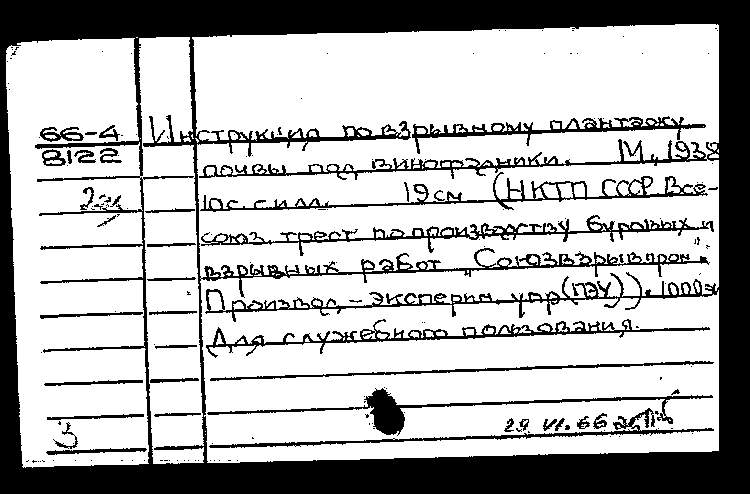 66-4 Инструкция по взрывному плантажу
8122 почвы под виноградники. М., 1938
2эк 10с. с илл. 19см (НКТП СССР. Все-
союз. трест по производству буровых и
взрывных работ „Союзвзрывпром“.
Производ.-эксперим. упр(ПЭУ)). 1000эк
Для служебного пользования.
3
29 VI. 66